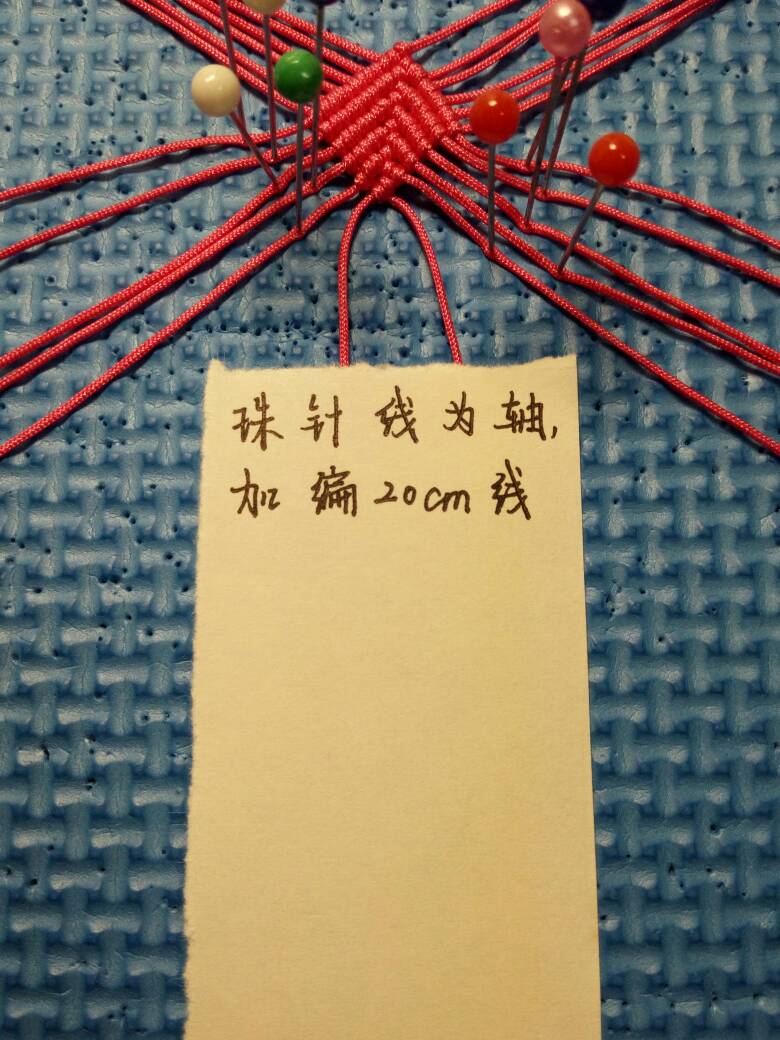 珠针线为轴,
加编20cm线